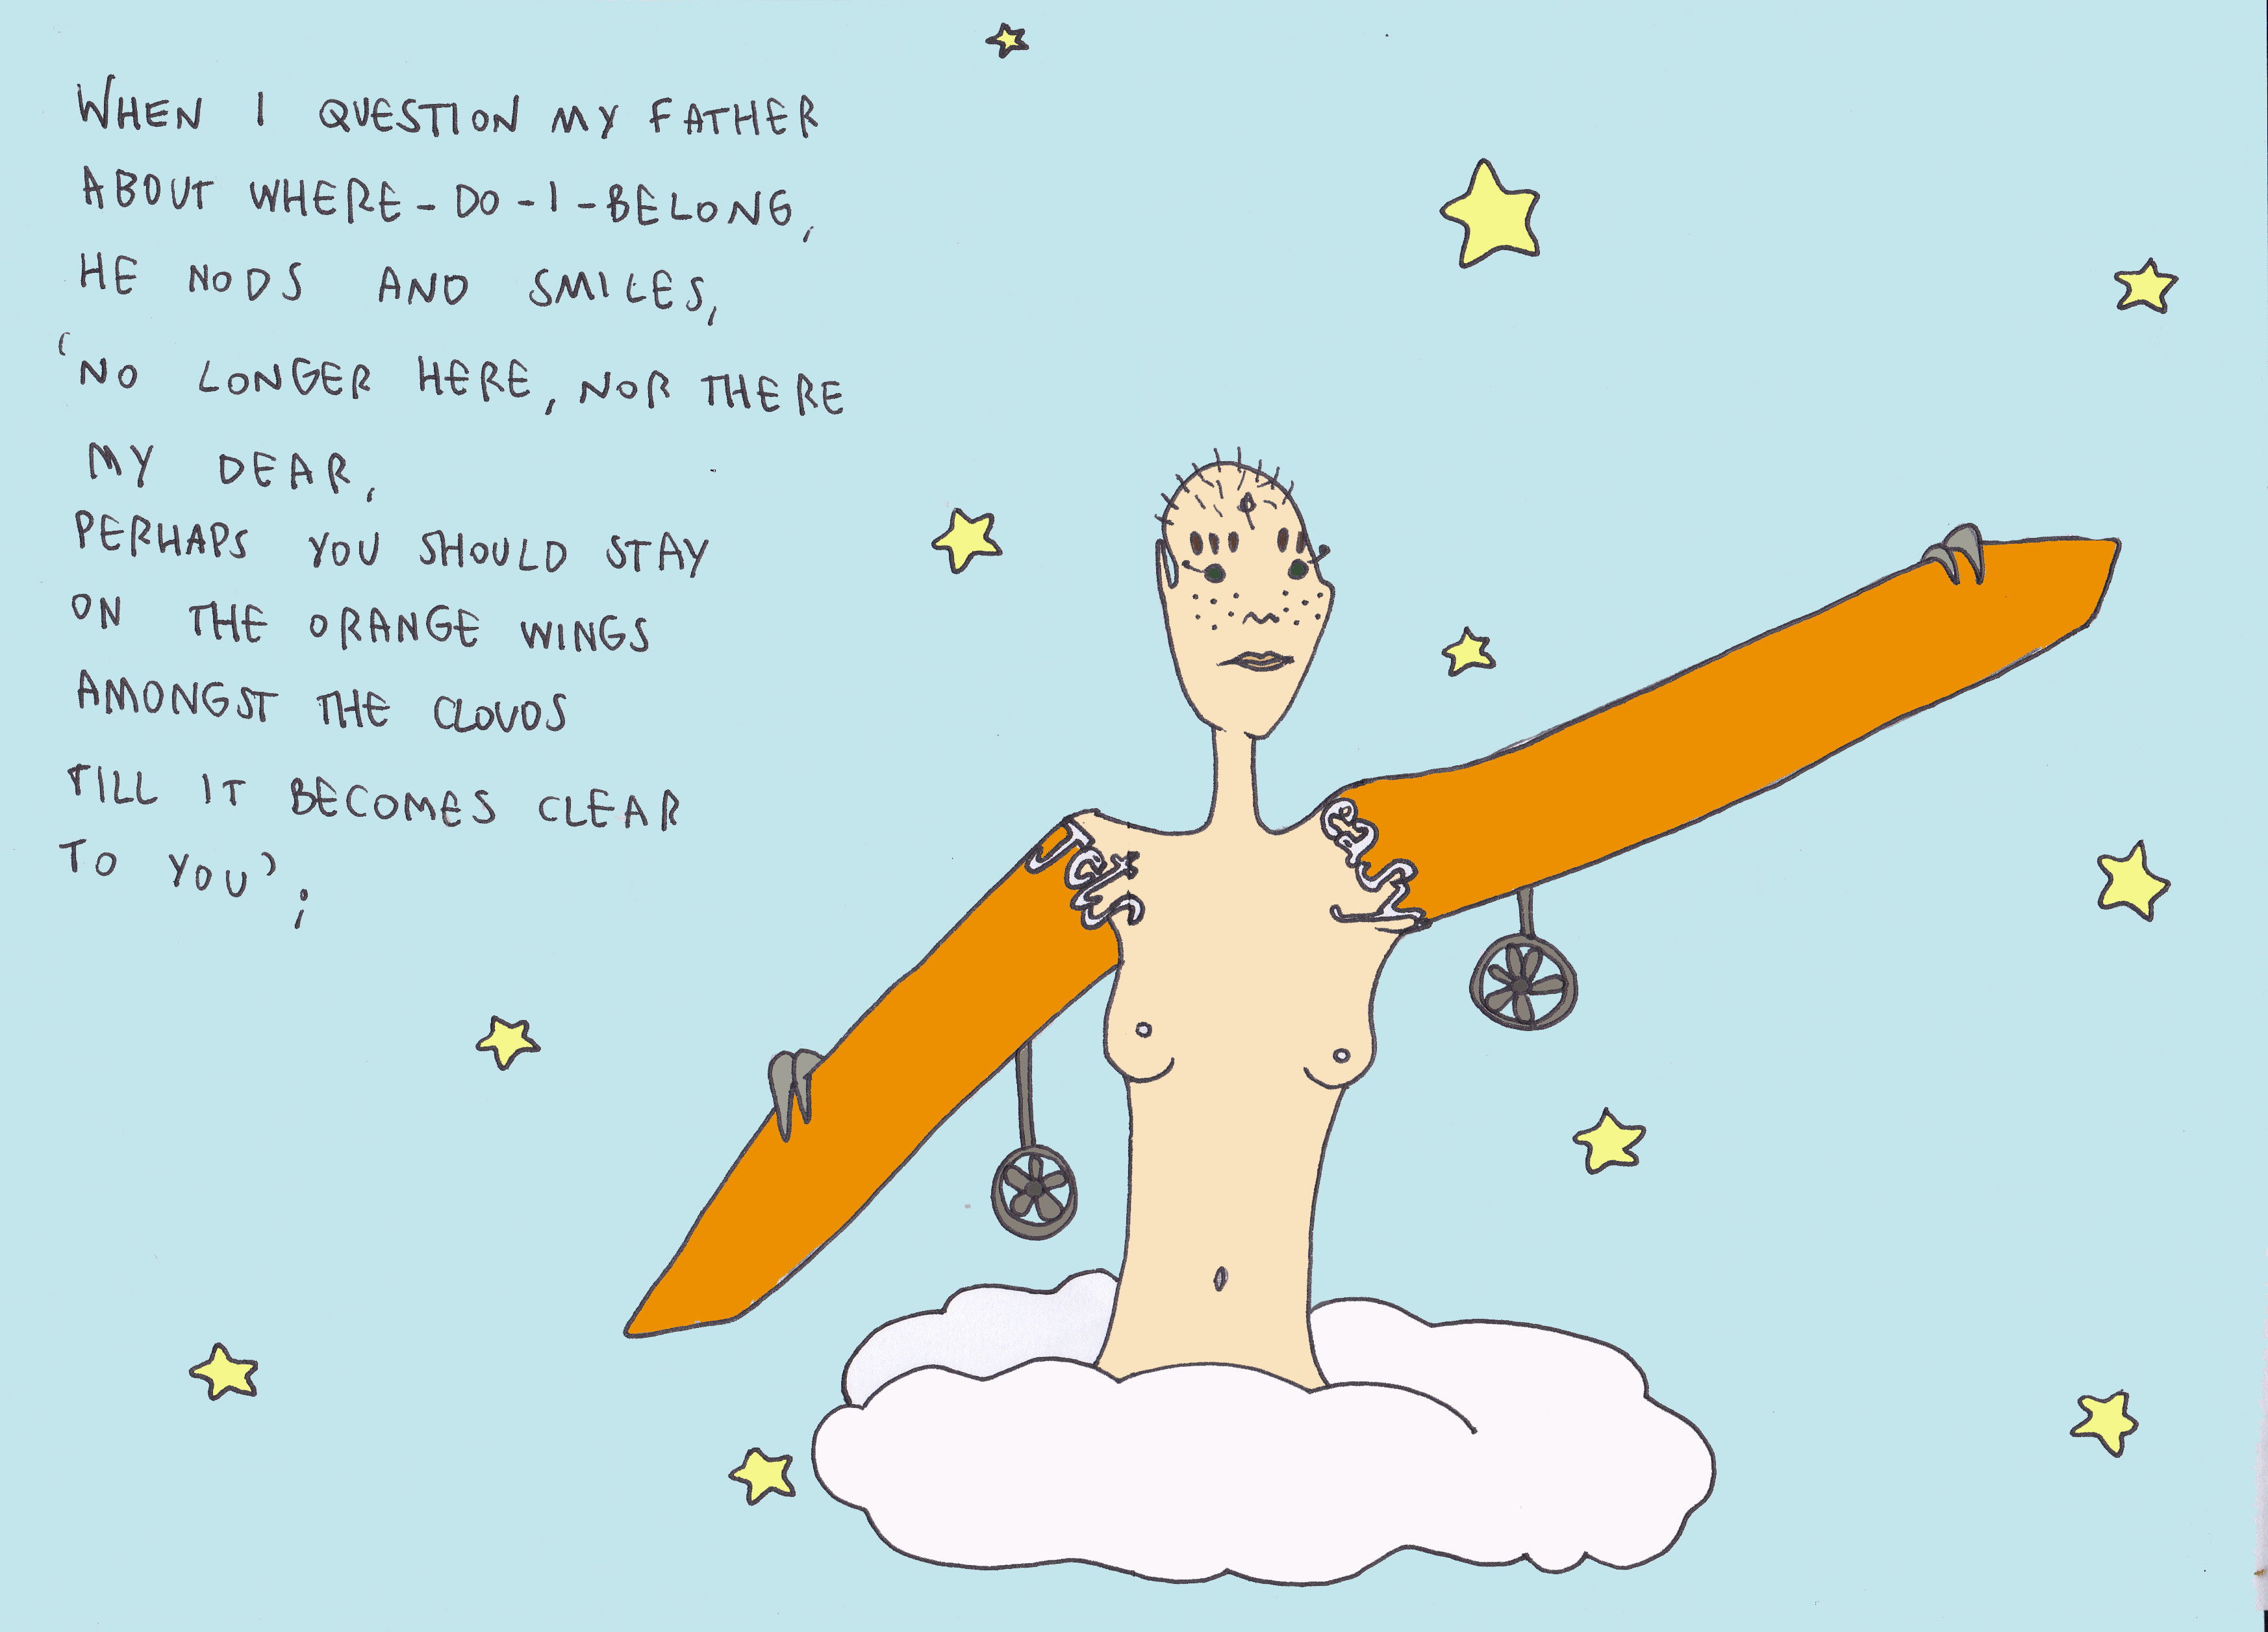 WHEN I QUESTION MY FATHER
ABOUT WHERE-DO-I-BELONG,
HE NODS AND SMILES,
'NO LONGER HERE, NOR THERE
MY DEAR,
PERHAPS YOU SHOULD STAY
ON THE ORANGE WINGS
AMONGST THE CLOUDS
TILL IT BECOMES CLEAR
TO YOU';